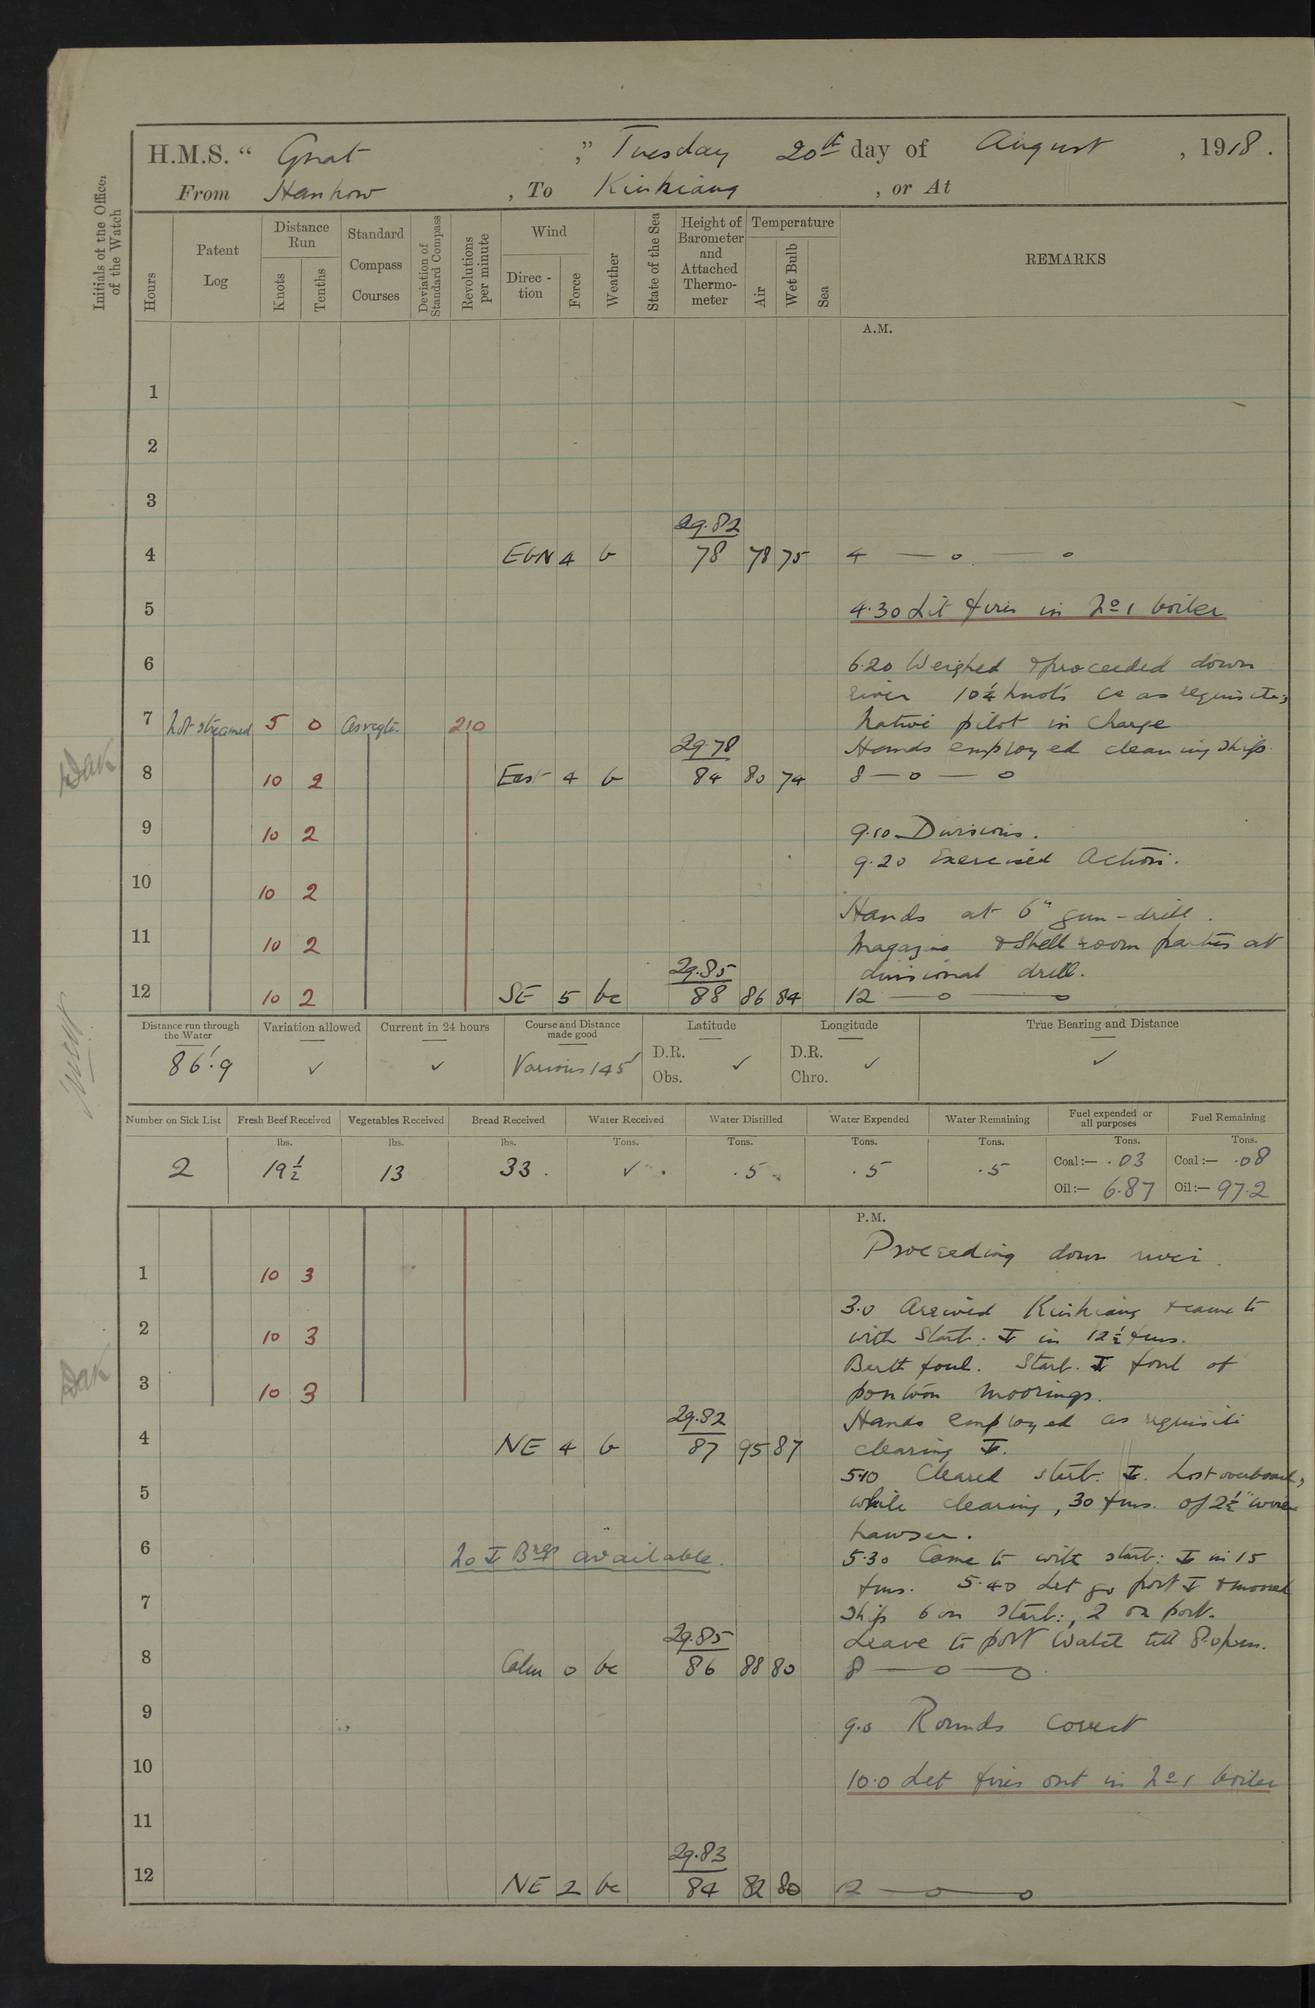 H.M.S. “ Gnat ,” Tuesday 20th day of August , 1918.
From Hankow , To Kiukiang , or At
Initials of the Officer of the Watch
Hours
Patent Log
Distance Run
Knots
Tenths
Standard Compass Courses
Deviation of Standard Compass
Revolutions per minute
Wind
Direc-tion
Force
Weather
State of the Sea
Height of Barometer and Attached Thermo-meter
Temperature
Air
Wet Bulb
Sea
REMARKS
A.M.
1
2
3
29.82
4 EbN 4 b 78 78 75 4 — o — o
5 4.30 Lit fires in No 1 boiler
6 6.20 Weighed & proceeded down
river 10¼ knots Co as requisite;
7 Not streamed 5 0 As reqte. 210 Native pilot in charge
29.78 Hands employed cleaning ship.
8 10 2 East 4 b 84 80 74 8 — o — o
9 10 2 9.10 Divisions.
9.20 Exercised Action.
10 10 2
Hands at 6" gun-drill.
11 10 2 Magazine & Shell room parties at
29.85 divisional drill.
12 10 2 SE 5 bc 88 86 84 12 — o — o
Distance run through the Water
Variation allowed
Current in 24 hours
Course and Distance made good
Latitude
Longitude
True Bearing and Distance
86'.9 ✓ ✓ Various 145' D.R. Obs. ✓ D.R. Chro. ✓ ✓
Number on Sick List
Fresh Beef Received
Vegetables Received
Bread Received
Water Received
Water Distilled
Water Expended
Water Remaining
Fuel expended or all purposes
Fuel Remaining
lbs. lbs. lbs. Tons. Tons. Tons. Tons. Tons. Tons.
2 19½ 13 33. ✓ .5 .5 .5 Coal:— .03 Coal:— .08
Oil:— 6.87 Oil:— 97.2
P.M.
Proceeding down river.
1 10 3
3.0 Arrived Kiukiang & came to
2 10 3 with Starb. in 12½ fms.
Berth foul. Starb. foul of
3 10 3 pontoon moorings.
29.82 Hands employed as requisite
4 NE 4 b 87 95 87 clearing
5.10 Cleared starb: Lost overboard,
5 while clearing, 30 fms. of 2½" wire
hawser.
6 No Brgs available. 5.30 Came to with starb: in 15
fms. 5.40 Let go port & moored
7 ship 6 on starb:, 2 on port.
29.85 Leave to port watch till 8.0 pm.
8 Calm 0 bc 86 88 80 8 — o — o
9 9.0 Rounds correct
10 10.0 Let fires out in No 1 boiler
11
29.83
12 NE 2 bc 84 82 80 12 — o — o